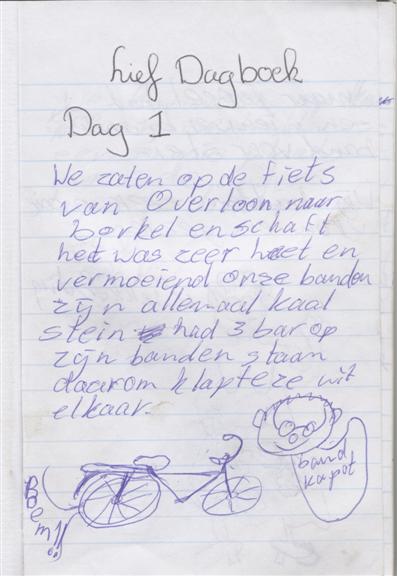 Lief Dagboek
Dag 1
We zaten op de fiets
van Overloon naar
borkel en schaft
het was zeer heet en
vermoeiend onze banden
zijn allemaal kaal
stein had 3 bar op
zijn banden staan
daarom klapte ze uit
elkaar.
band
kapot
Boem!!